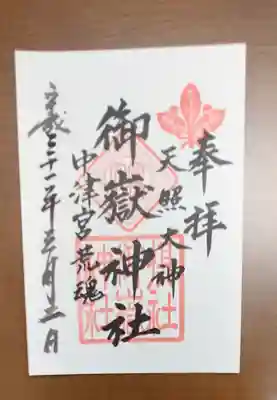 奉拝
天照大神
御嶽神社
中津宮荒魂
平成三十一年三月二日